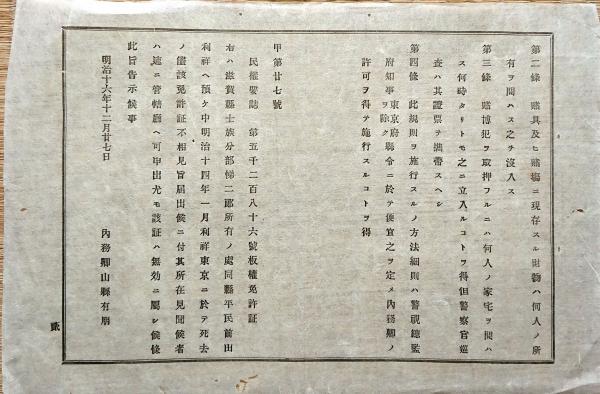 第二條 賭具及ヒ賭場ニ現存スル財物ハ何人ノ所
有ヲ問ハス之ヲ沒入ス
第三條 賭博犯ヲ取押フルニハ何人ノ家宅ヲ問ハ
ス何時タリトモ之ニ立入ルコトヲ得但警察官巡
査ハ其證票ヲ携帶スヘシ
第四條 此規則ヲ施行スルノ方法細則ハ警視總監
府知事 東京府ヲ除ク 縣令ニ於テ便宜之ヲ定メ內務卿ノ
許可ヲ得テ施行スルコトヲ得
甲第廿七號
民權要誌 第五千二百八十六號板權免許証
右ハ滋賀縣士族分部悌二郞所有ノ處同縣平民前田
利祥ヘ預ケ中明治十四年一月利祥東京ニ於テ死去
ノ儘該免許証不相見旨屆出候ニ付其所在見聞候者
ハ速ニ管轄廳ヘ可申出尤モ該証ハ無効ニ屬シ候條
此旨告示候事
明治十六年十二月廿七日
內務卿山縣有朋
貳